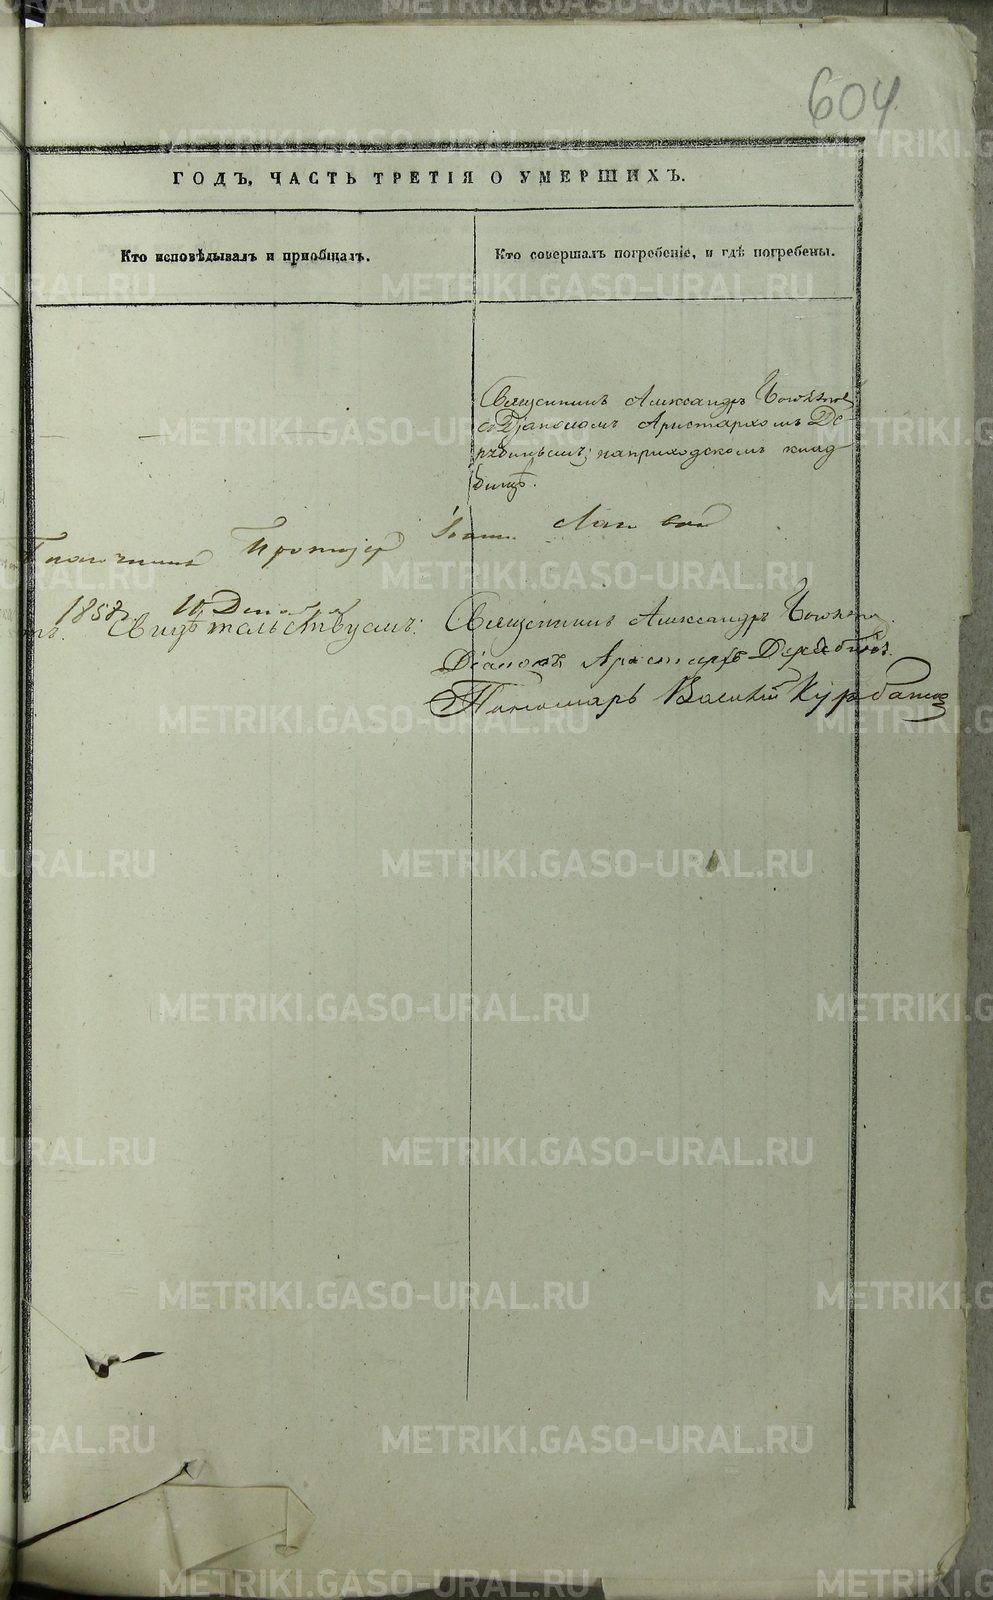 604
ГОДЪ, ЧАСТЬ ТРЕТІЯ О УМЕРШИХЪ.
Кто исповѣдывалъ и приобщалъ.
Кто совершалъ погребеніе, и гдѣ погребены.
Священникъ Александръ
съ Діакономъ Аристархомъ Де-
рябинымъ; на приходскомъ клад
бищѣ.
Благочинный Протоіерей
1858 10 Декабря
Свидѣтельствуемъ:
Священникъ Александръ
Діаконъ Аристархъ Дерябинъ.
Пономарь Василій Курбатов
METRIKI.GASO-URAL.RU